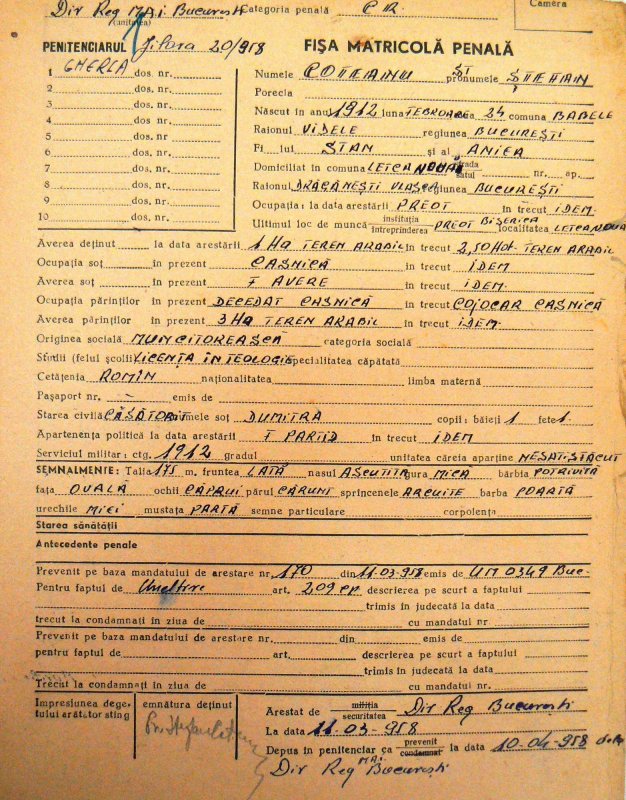 Dir Reg M.A.I. Bucuresti Categoria penală C.R. Camera
(unitatea)
PENITENCIARUL Jilava 20/958 FIȘA MATRICOLĂ PENALĂ
1 GHERLA dos. nr.
2 dos. nr.
3 dos. nr.
4 dos. nr.
5 dos. nr.
6 dos. nr.
7 dos. nr.
8 dos. nr.
9 dos. nr.
10 dos. nr.
Numele COTEANU ȘI pronumele ȘTEFAN
Porecla
Născut în anul 1912 luna FEBROARea 24 comuna BABELE
Raionul VIDELE regiunea BUCUREȘTI
Fi lui STAN și al ANICA
Domiciliat în comuna LETCA NOUĂ strada satul nr. ap.
Raionul DRĂGĂNEȘTI VLAȘCA regiunea BUCUREȘTI
Ocupația: la data arestării PREOT în trecut IDEM
Ultimul loc de muncă instituția întreprinderea PREOT BISERICA localitatea LETCA NOUA
Averea deținut la data arestării 1 Ha TEREN ARABIL în trecut 2,50 Hat TEREN ARABIL
Ocupația soț în prezent CASNICĂ în trecut IDEM
Averea soț în prezent F AVERE în trecut IDEM
Ocupația părinților în prezent DECEDAT CASNICĂ în trecut COJOCAR CASNICĂ
Averea părinților în prezent 3 Ha TEREN ARABIL în trecut IDEM
Originea socială MUNCITOREASCĂ categoria socială
Studii (felul școlii LICENȚA ÎN TEOLOGIE specialitatea căpătată
Cetățenia ROMÎN naționalitatea limba maternă
Pașaport nr. - emis de
Starea civilă CĂSĂTORIT numele soț DUMITRA copii: băieți 1 fete 1
Apartenența politică la data arestării F PARTID în trecut IDEM
Serviciul militar: ctg. 1912 gradul unitatea căreia aparține NESATISFĂCUT
SEMNALMENTE: Talia 175 m. fruntea LATĂ nasul ASCUȚIT gura MICĂ bărbia POTRIVITĂ
fața OVALĂ ochii CĂPRUI părul CĂRUNT sprîncenele ARCUITE barba POARTĂ
urechile MICI mustața PARTĂ semne particulare corpolența
Starea sănătății
Antecedente penale
Prevenit pe baza mandatului de arestare nr. 170 din 11-03-958 emis de UM 0349 Buc-
Pentru faptul de Uneltire art. 209 CP descrierea pe scurt a faptului
trimis în judecată la data
trecut la condamnați în ziua de cu mandatul nr.
Prevenit pe baza mandatului de arestare nr. din emis de
pentru faptul de art. descrierea pe scurt a faptului
trimis în judecată la data
Trecut la condamnați în ziua de cu mandatul nr.
Impresiunea degetului arătător sting
emnătura deținut
Arestat de miliția securitatea Dir Reg Bucuresti
La data 11-03-958
Depus in penitenciar ca prevenit condamnat la data 10-04-958 de la
Dir Reg M.A.I. Bucuresti